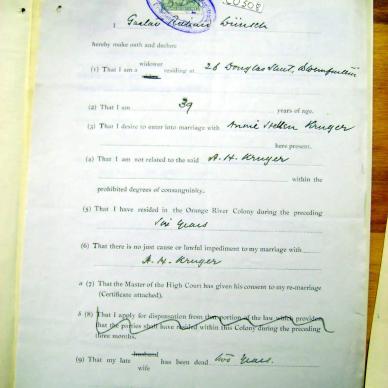 I Gustav Wünsch
hereby make oath and declare
widower
(1) That I am a residing at 26 Douglas Street, Bloemfontein
(2) That I am 39 years of age.
(3) That I desire to enter into marriage with Annie Kruger
here present.
(4) That I am not related to the said A. H. Kruger
within the
prohibited degrees of consanguinity.
(5) That I have resided in the Orange River Colony during the preceding
Six Years
(6) That there is no just cause or lawful impediment to my marriage with
A. H. Kruger
a (7) That the Master of the High Court has given his consent to my re-marriage
(Certificate attached).
b (8) That I apply for dispensation from that portion of the law which provides
that the parties shall have resided within this Colony during the preceding
three months.
(9) That my late husband has been dead two Years.
wife